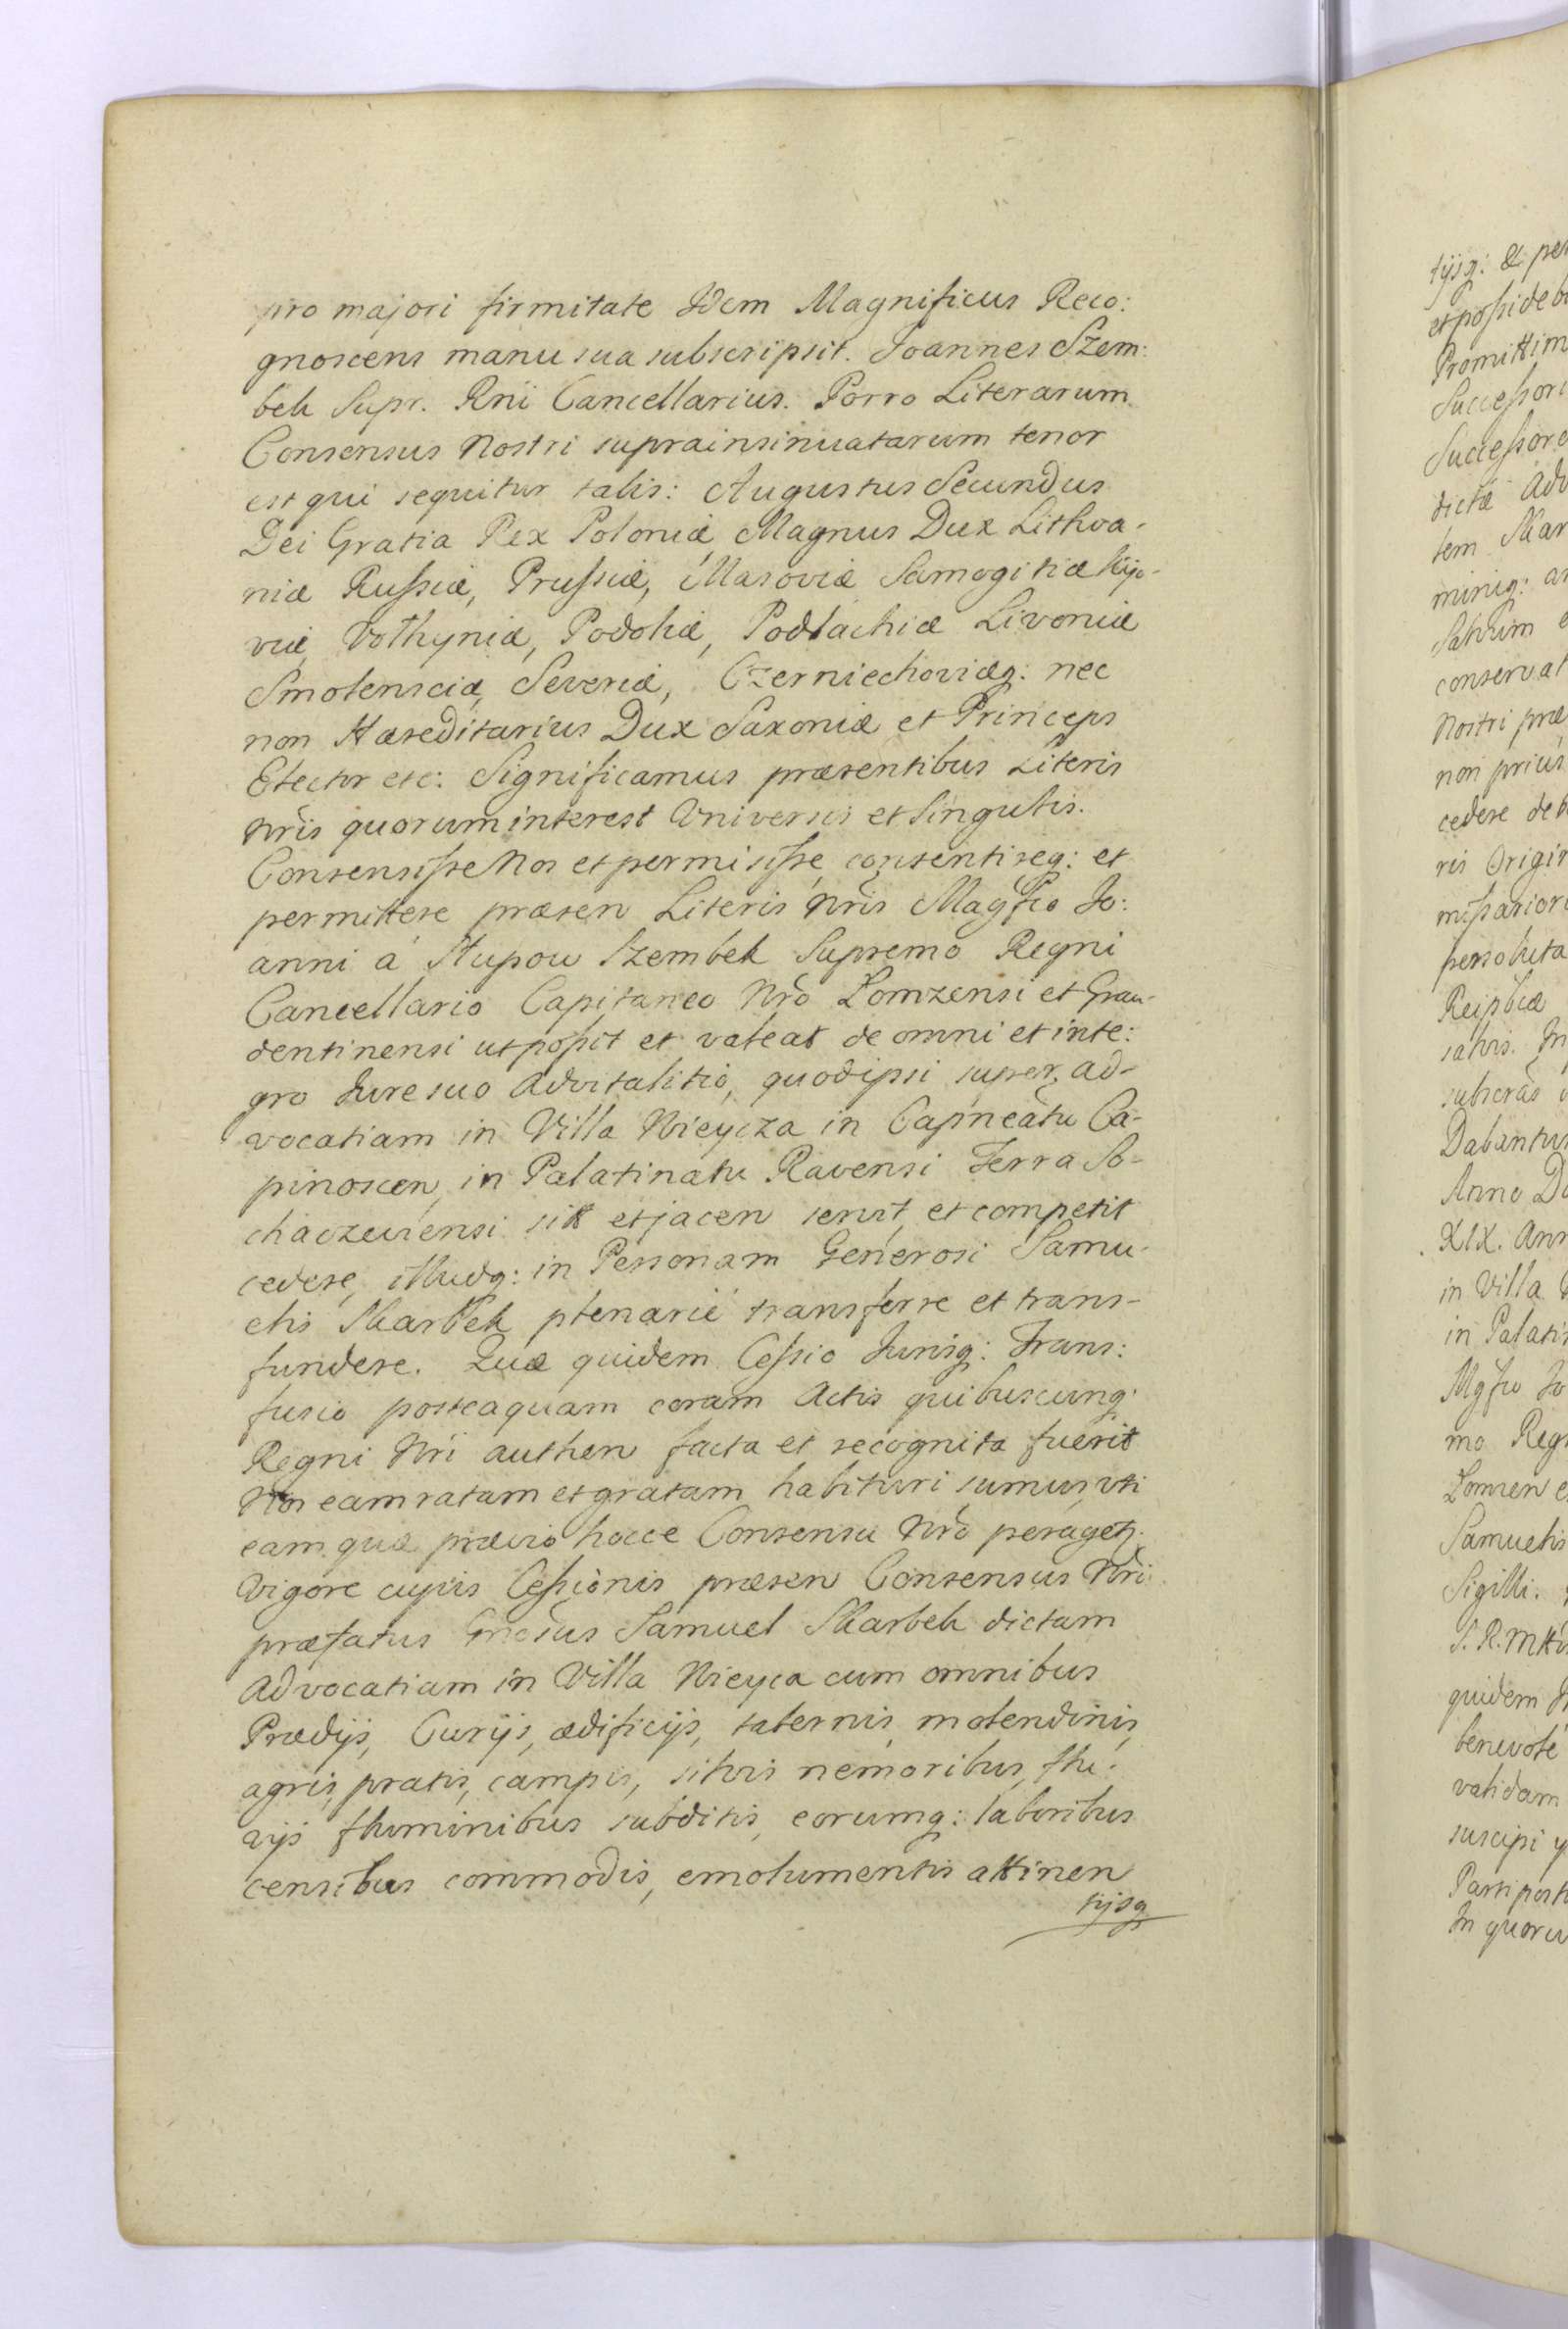 pro majori firmitate Idem Magnificus Reco:
gnoscens manu sua subscripsit. Joannes Szem:
bek Supr. Rni Cancellarius. Porro Literarum
Consensus Nostri suprainsinuatarum tenor
est qui sequitur talis: Augustus Secundus
Dei Gratia Rex Poloniæ, Magnus Dux Lithva-
niæ Russiæ, Prussiæ, Masoviæ Samogitiæ Kijo-
viæ, Volhyniæ, Podoliæ, Podlachiæ Livoniæ
Smolensciæ, Severiæ, Czerniechoviæq: nec
non Hæreditarius Dux Saxoniæ et Princeps
Elector etc: Significamus præsentibus Literis
Nris quorum interest Universis et Singulis.
Consensisse Nos et permisisse, consentireq: et
permittere præsen Literis Nris Magfco Jo:
anni á Słupow Szembek Supremo Regni
Cancellario Capitaneo Nro Lomzensi et Grau-
dentinensi ut possit et valeat de omni et inte:
gro Jure suo Advitalitio, quod ipsi super Ad-
vocatiam in Villa Nieycza in Capineatu Ca-
pinoscen, in Palatinatu Ravensi Terra So-
chaczeviensi sit et jacen servit et competit
cedere, illudq: in Personam Generosi Samu-
elis Skarbek plenarié transferre et trans-
fundere. Quæ quidem Cessio Jurisq: Trans:
fusio posteaquam coram Actis quibuscunq:
Regni Nri authen facta et recognita fuerit
Nos eam ratam et gratam habituri sumus, uti
eam quæ prævio hocce Consensu Nro peragetr.
Vigore cujus Cessionis præsen Consensus Nri
præfatus Gnosus Samuel Skarbek dictam
Advocatiam in Villa Nieyca cum omnibus
Prædijs, Curijs, ædificijs, tabernis, molendinis,
agris, pratis, campis, silvis nemoribus, flu:
vijs fluminibus subditis, eorumq: laboribus
censibus commodis, emolumentis attinen
tijsq
tijsq: &
et posside
Promittim
Successor
Successore
dictæ Adv
tem Skar
miniq:
Salvum
conservat
Nostri præ
non prius
cedere deb
ris Origin
missarior
persoluta
Reipblæ
salvis. In
subscras
Dabantur
Anno Do
XIX. Ann
in Villa
in Palatin
Mgfco Jo
mo Regn
Lomzen e
Samuelis
Sigilli.
S. R. Mttis
quidem
benevolé
validam
suscipi
Parti post
In quoru